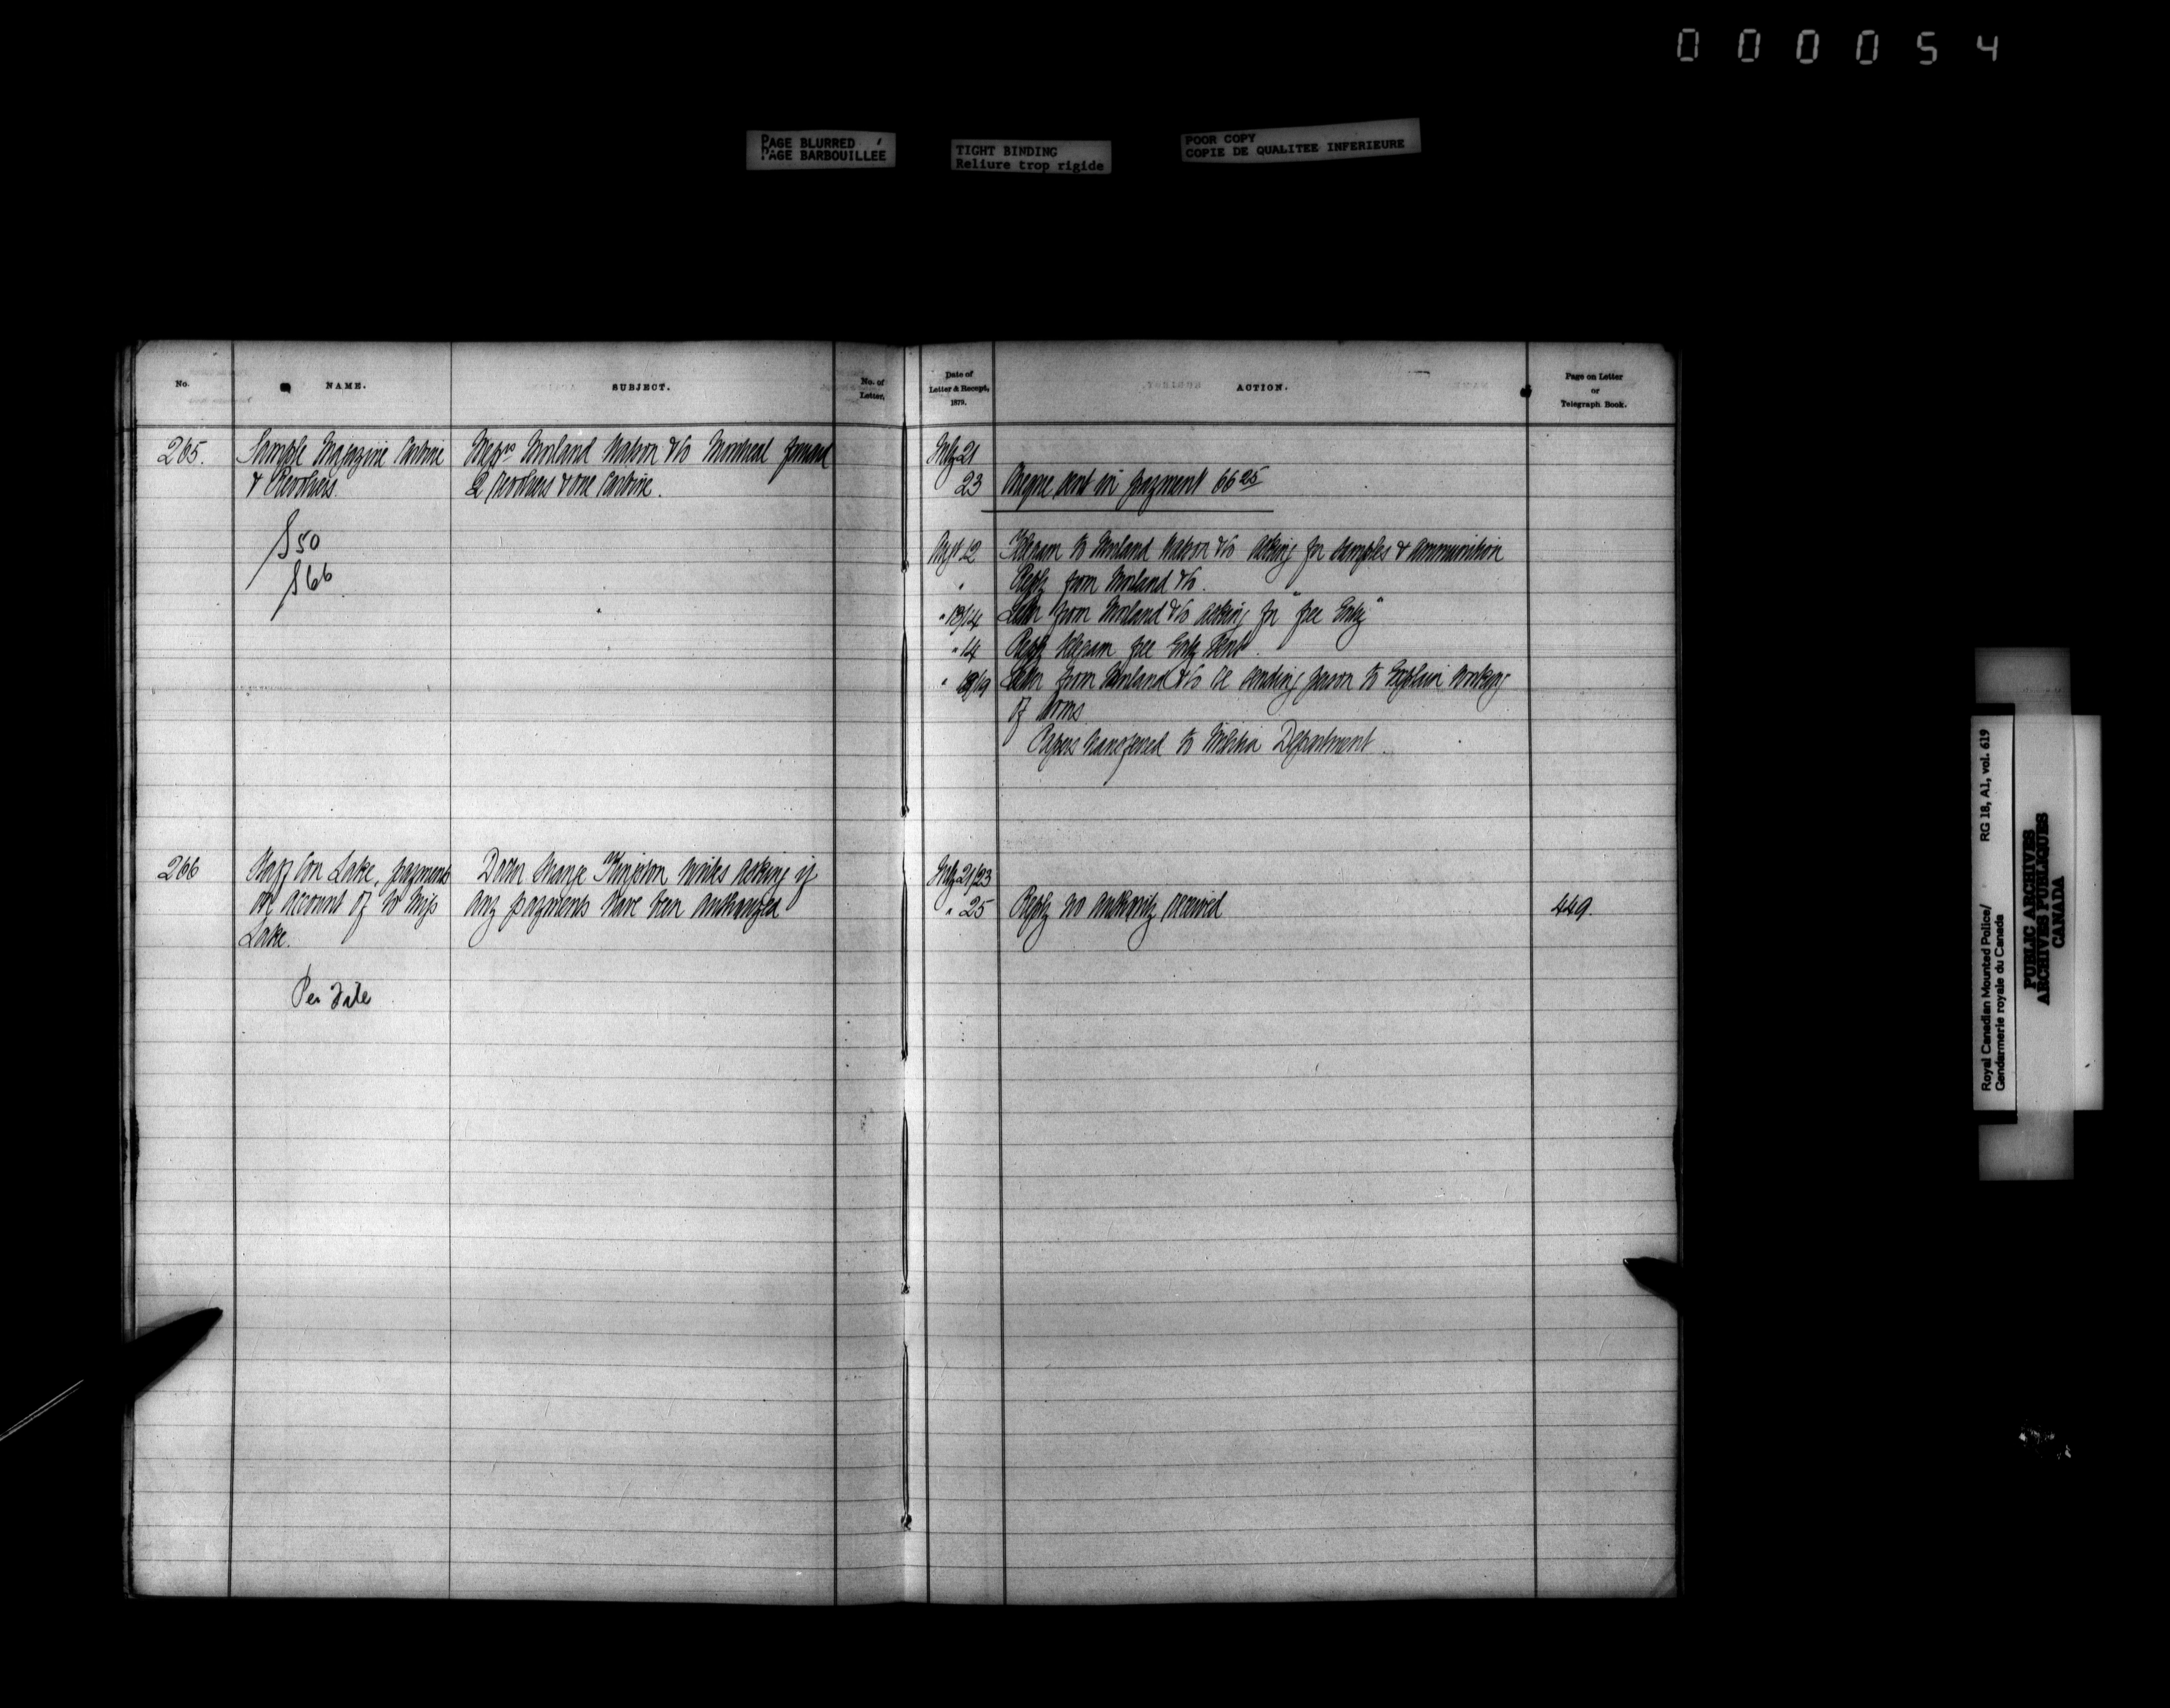 000054
PAGE BLURRED
PAGE BARBOUILLEE
TIGHT BINDING
Reliure trop rigide
POOR COPY
COPIE DE QUALITEE INFERIEURE
No.
NAME.
SUBJECT.
No. of
Letter.
Date of
Letter & Receipt,
1879.
ACTION.
Page on Letter
or
Telegraph Book.
265.
Sample Magazine Carbine
& Revolvers.
Messrs Morland Watson & Co Montreal forward
2 Revolvers & one Carbine.
July 21
23
Cheque sent in payment 66 25
$50
$66
Augt 12
Telegram to Morland Watson & Co asking for samples & ammunition
"
Reply from Morland & Co.
" 13/14
Letter from Morland & Co asking for "free Entry"
" 14
Reply telegram free Entry sent.
" 18/19
Letter from Morland & Co re sending person to Explain workings
of Arms
Papers transferred to Militia Department.
266
Staff Con Lake, payments
on account of to Miss
Lake.
July 21/23
writes asking if
any payments have been authorized
" 25
Reply no authority received
449.
Per File
Royal Canadian Mounted Police/
Gendarmerie royale du Canada
RG 18, A1, vol. 619
PUBLIC ARCHIVES
ARCHIVES PUBLIQUES
CANADA